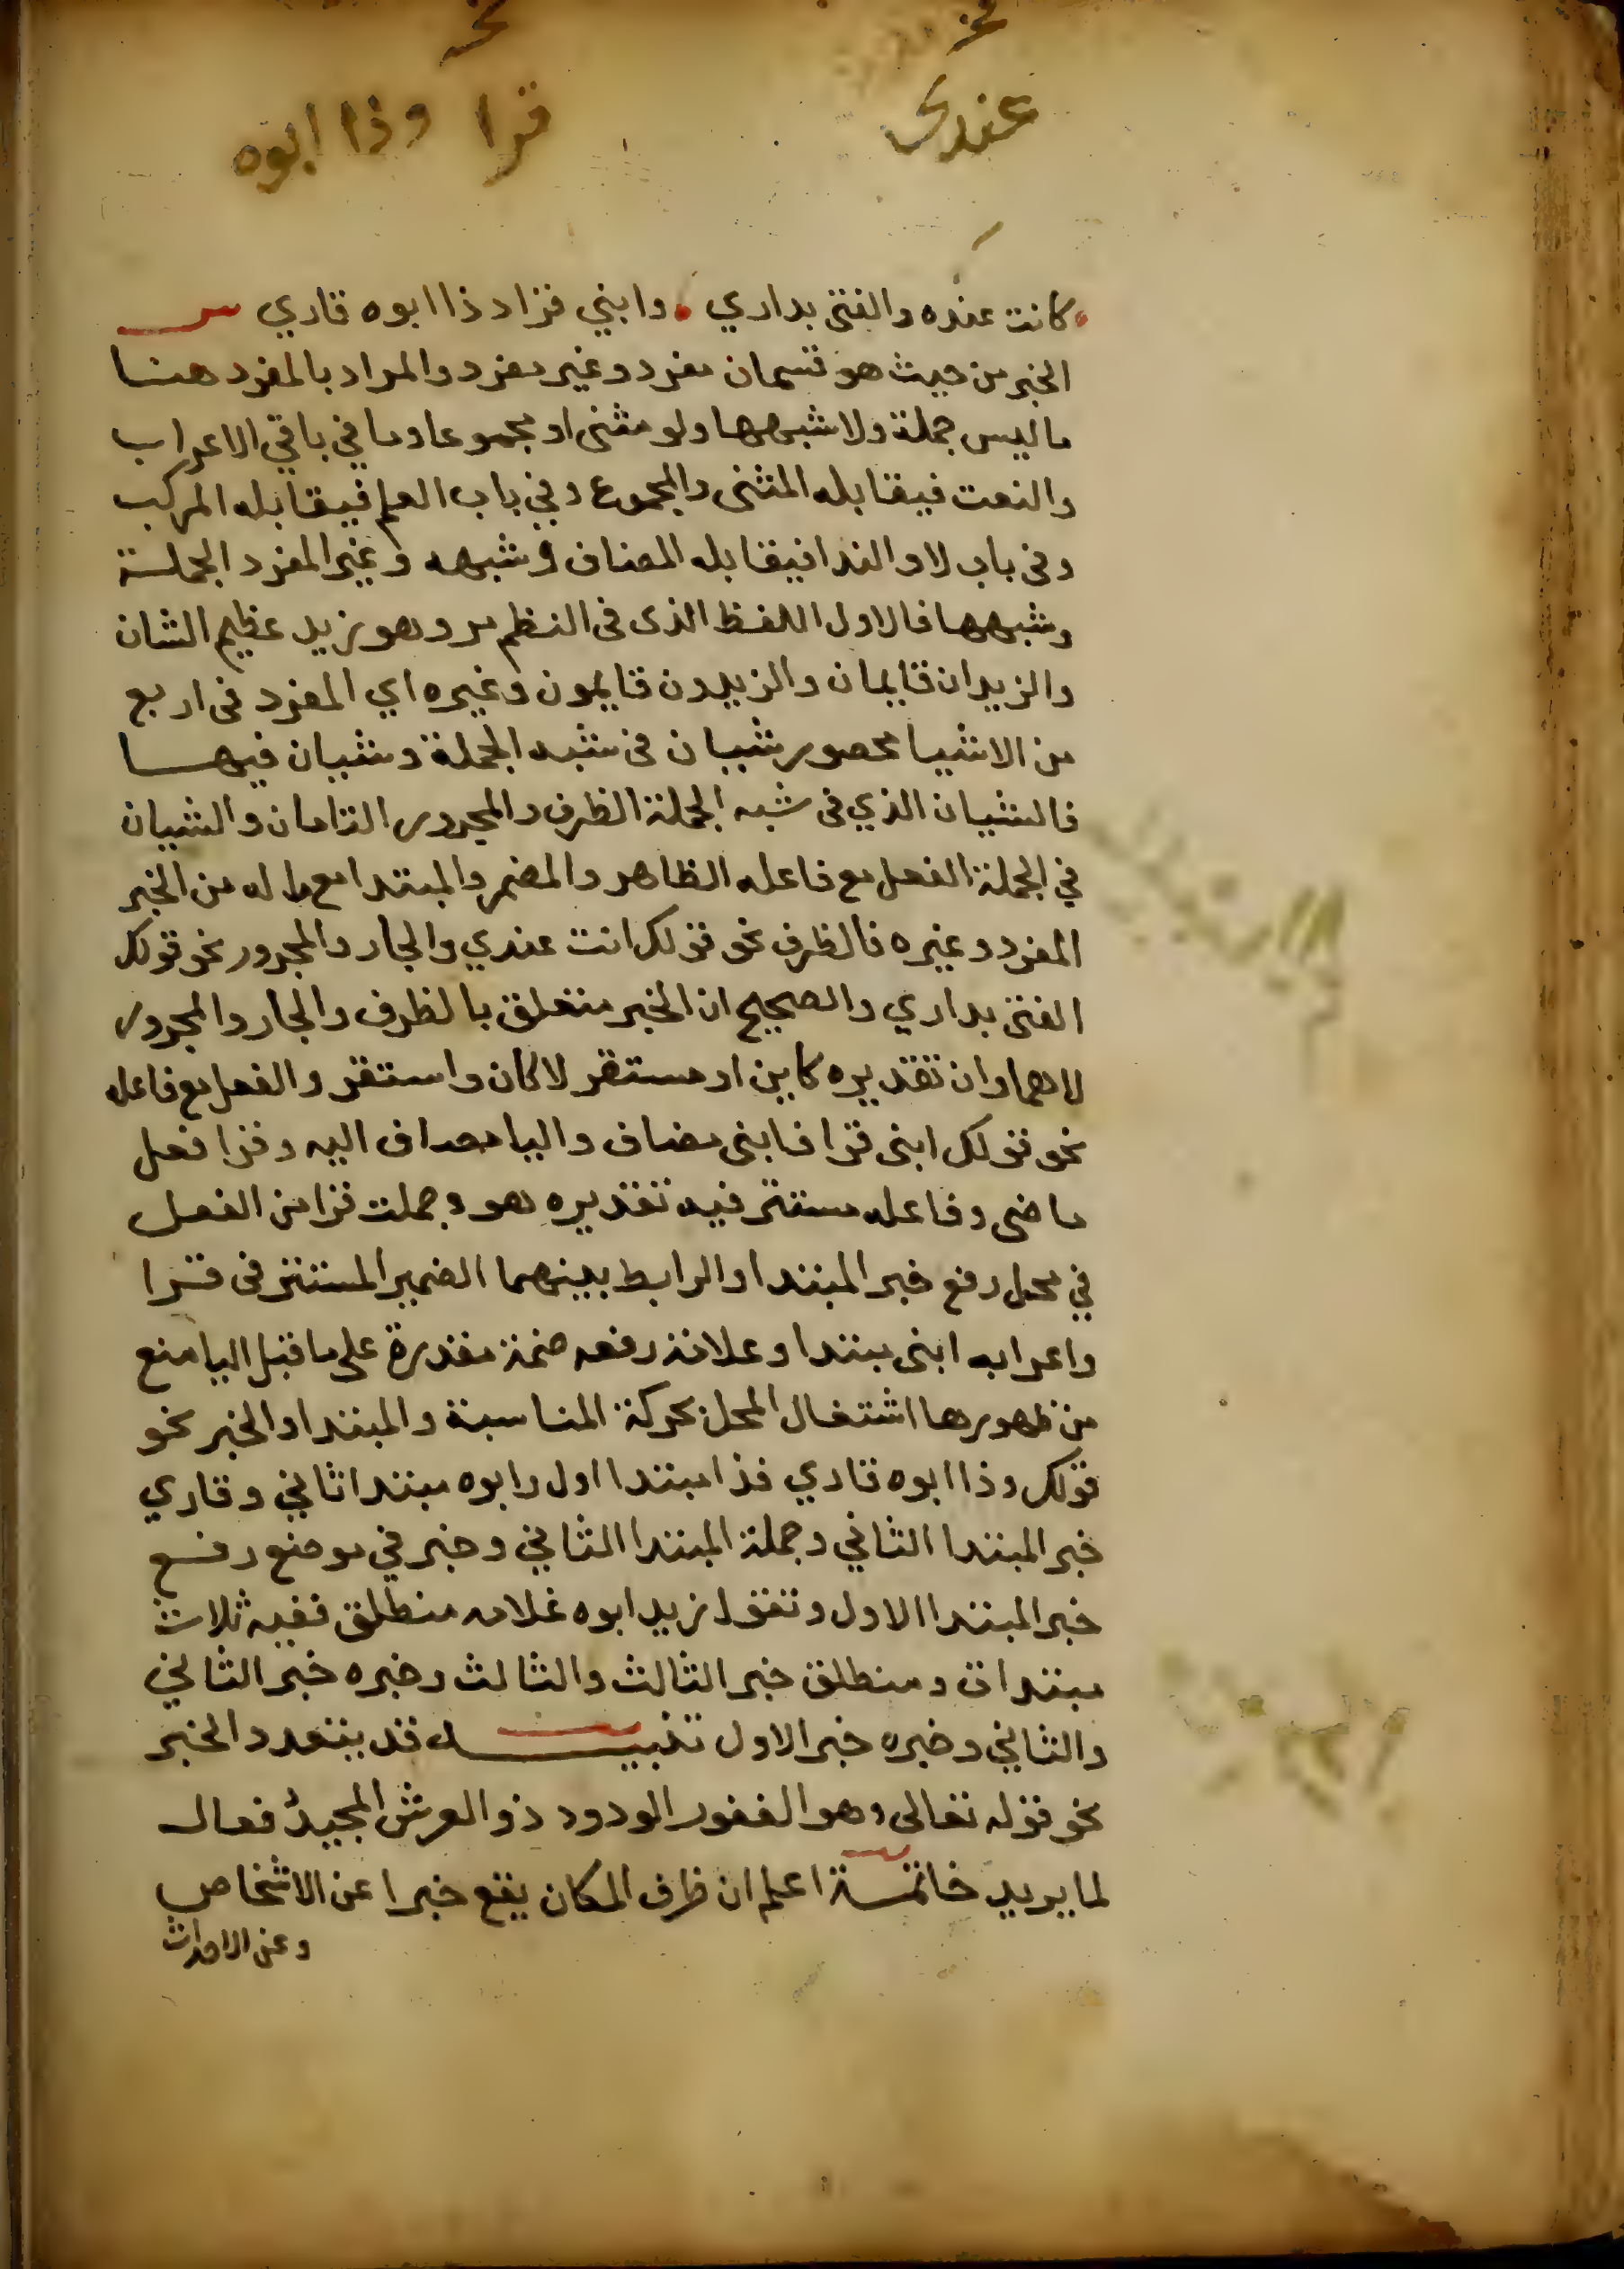 نحو نحو
عندي قرا وذا ابوه
كانت عنده والفتى بداري وابني قرا وذا ابوه قاري
الخبر من حيث هو قسمان مفرد وغير مفرد والمراد بالمفرد هنا
ما ليس جملة ولا شبهها ولو مثنى او مجموعا وما في باقي الاعراب
والنعت فيقابله المثنى والمجموع وفي باب العلم فيقابله المركب
وفى باب لا والندا فيقابله المضاف وشبهه وغير المفرد الجملة
وشبهها فالاول اللفظ الذى فى النظم مر وهو زيد عظيم الشان
والزيدان قايمان والزيدون قايمون وغيره اي المفرد فى اربع
من الاشيا محصور شييان فى شبه الجملة وشييان فيها
فالشييان الذي فى شبه الجملة الظرف والمجرور التامان والشييان
في الجملة الفعل مع فاعله الظاهر والمضمر والمبتدا مع ما له من الخبر
المفرد وغيره فالظرف نحو قولك انت عندي والجار والمجرور نحو قولك
الفتى بداري والصحيح ان الخبر متعلق بالظرف والجار والمجرور
لا هما وان تقديره كاين او مستقر لا كان واستقر والفعل مع فاعله
نحو قولك ابنى قرا فابنى مضاف واليا مضاف اليه وقرا فعل
ماضى وفاعله مستتر فيه تقديره هو وجملت قرا من الفعل
في محل رفع خبر المبتدا والرابط بينهما الضمير المستتر فى قرا
واعرابه ابنى مبتدا وعلامة رفعه ضمة مقدرة على ما قبل اليا منع
من ظهورها اشتغال المحل بحركة المناسبة والمبتدا والخبر نحو
قولك وذا ابوه قاري فذا مبتدا اول وابوه مبتدا ثاني وقاري
خبر المبتدا الثاني وجملة المبتدا الثاني وخبر في موضع رفع
خبر المبتدا الاول وتقول زيد ابوه غلامه منطلق ففيه ثلاث
مبتدات ومنطلق خبر الثالث والثالث وخبره خبر الثاني
والثاني وخبره خبر الاول تنبيه قد يتعدد الخبر
نحو قوله تعالى وهو الغفور الودود ذو العرش المجيدُ فعال
لما يريد خاتمة اعلم ان ظرف المكان يقع خبرا عن الاشخاص
وعن الاحداث